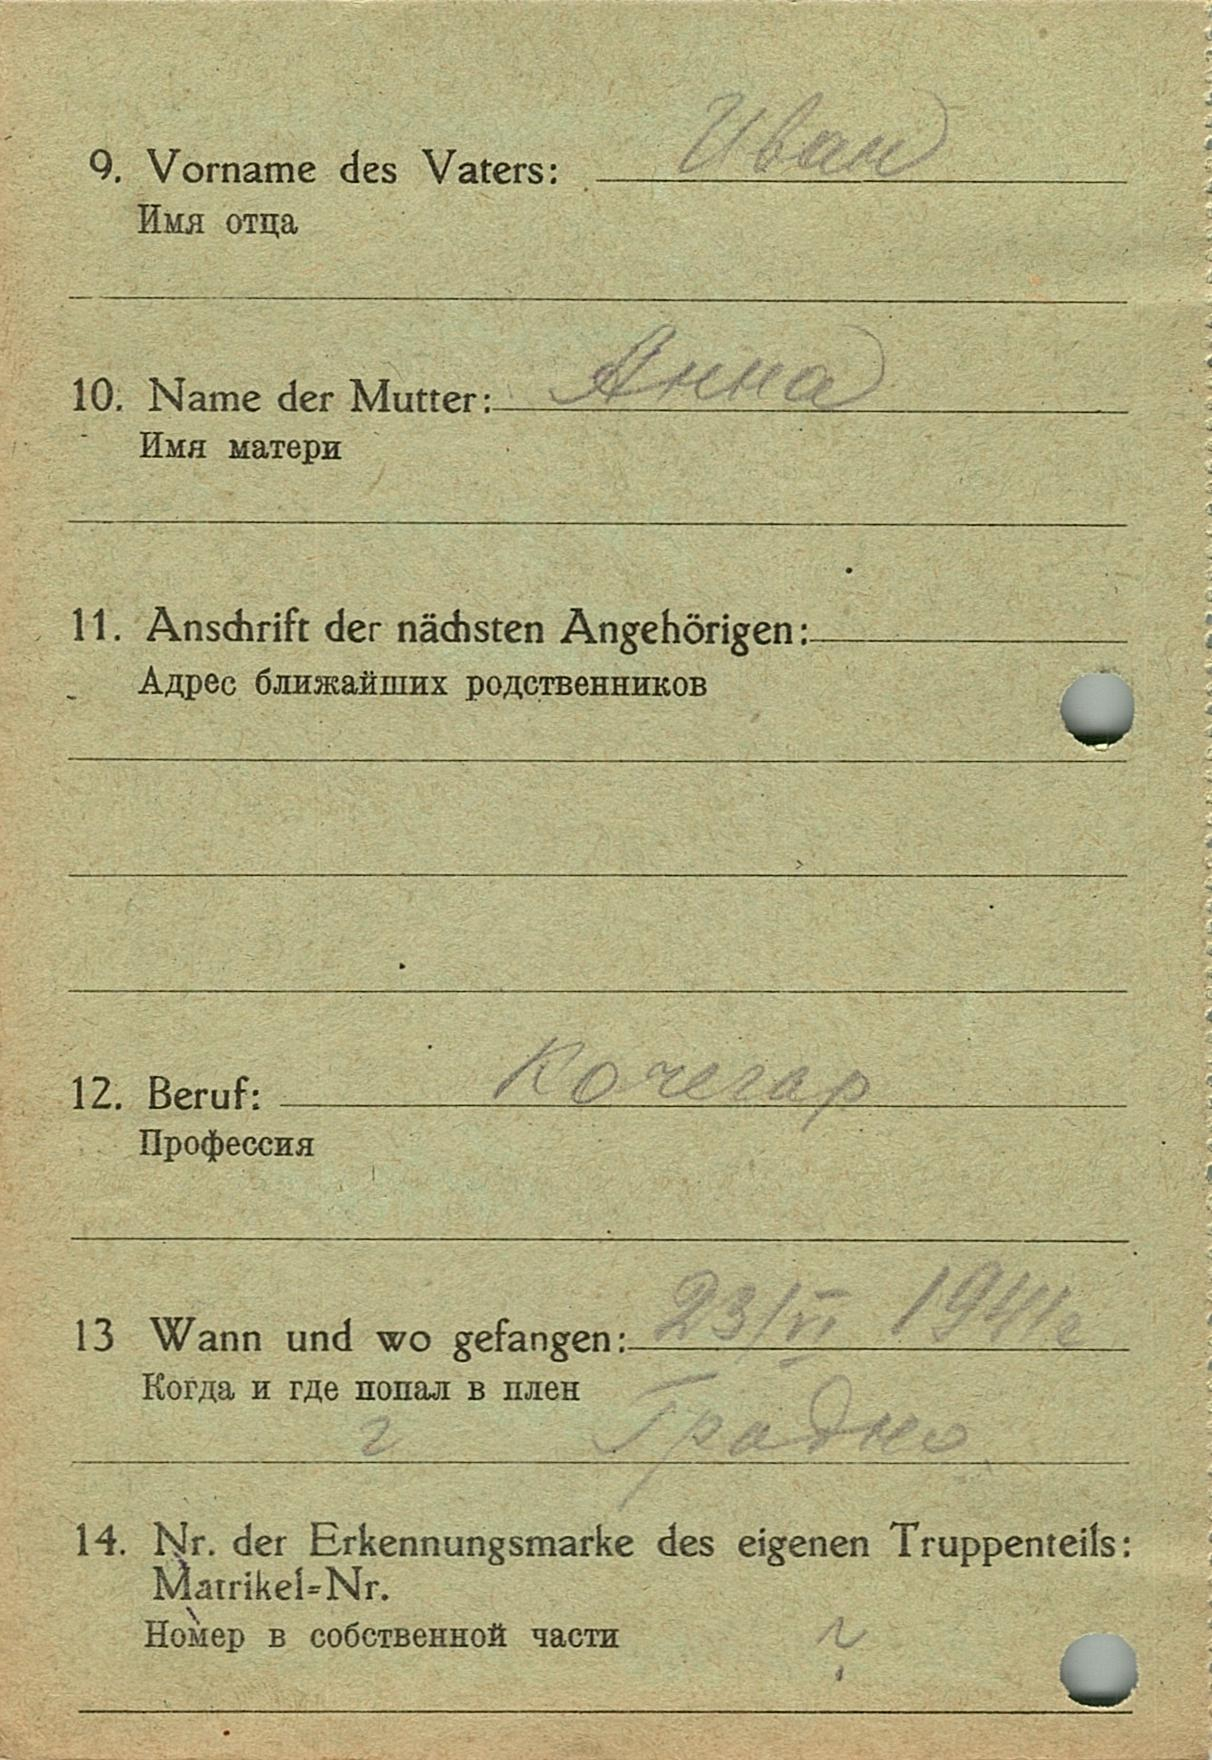 9. Vorname des Vaters: Иван
Имя отца
10. Name der Mutter: Анна
Имя матери
11. Anschrift der nächsten Angehörigen:
Адрес ближайших родственников
12. Beruf: Кочегар
Профессия
13 Wann und wo gefangen: 23/VI 1941г
Когда и где попал в плен
г Градно
14. Nr. der Erkennungsmarke des eigenen Truppenteils:
Matrikel=Nr.
Номер в собственной части
?